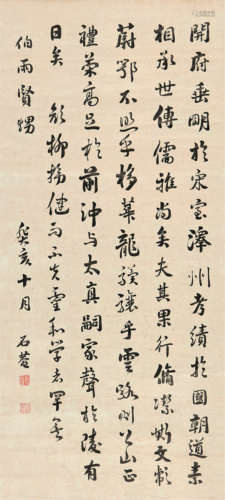 開府垂明於宋室澤州考績於國朝道素
相承世傳儒雅尚矣夫其果行脩潔斯文彪
蔚鄂不照乎移華龍驥驤乎雲路則公山正
禮策高足於前沖与太真嗣家聲於後有
日矣
伯雨賢甥
癸亥十月 石菴